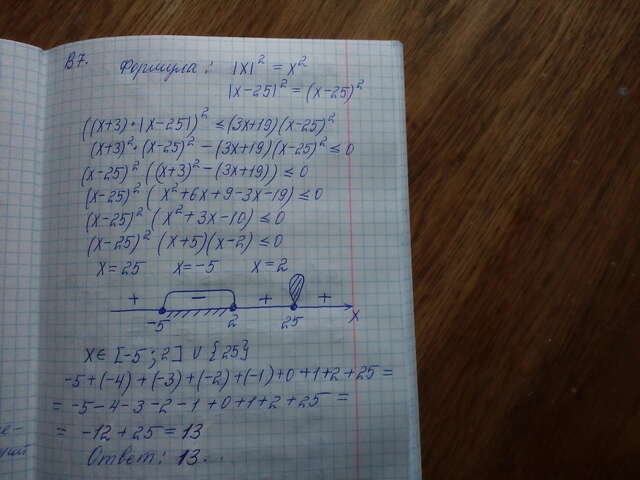 В7.
Формула: |x|² = x²
|x-25|² = (x-25)²
((x+3)·|x-25|)² ≤ (3x+19)(x-25)²
(x+3)²·(x-25)² - (3x+19)(x-25)² ≤ 0
(x-25)² ((x+3)² - (3x+19)) ≤ 0
(x-25)² (x²+6x+9-3x-19) ≤ 0
(x-25)² (x²+3x-10) ≤ 0
(x-25)² (x+5)(x-2) ≤ 0
x=25 x=-5 x=2
+ - + +
-5 2 25 x
x∈ [-5; 2] ∪ {25}
-5+(-4)+(-3)+(-2)+(-1)+0+1+2+25 =
= -5-4-3-2-1+0+1+2+25 =
= -12+25=13
Ответ: 13.